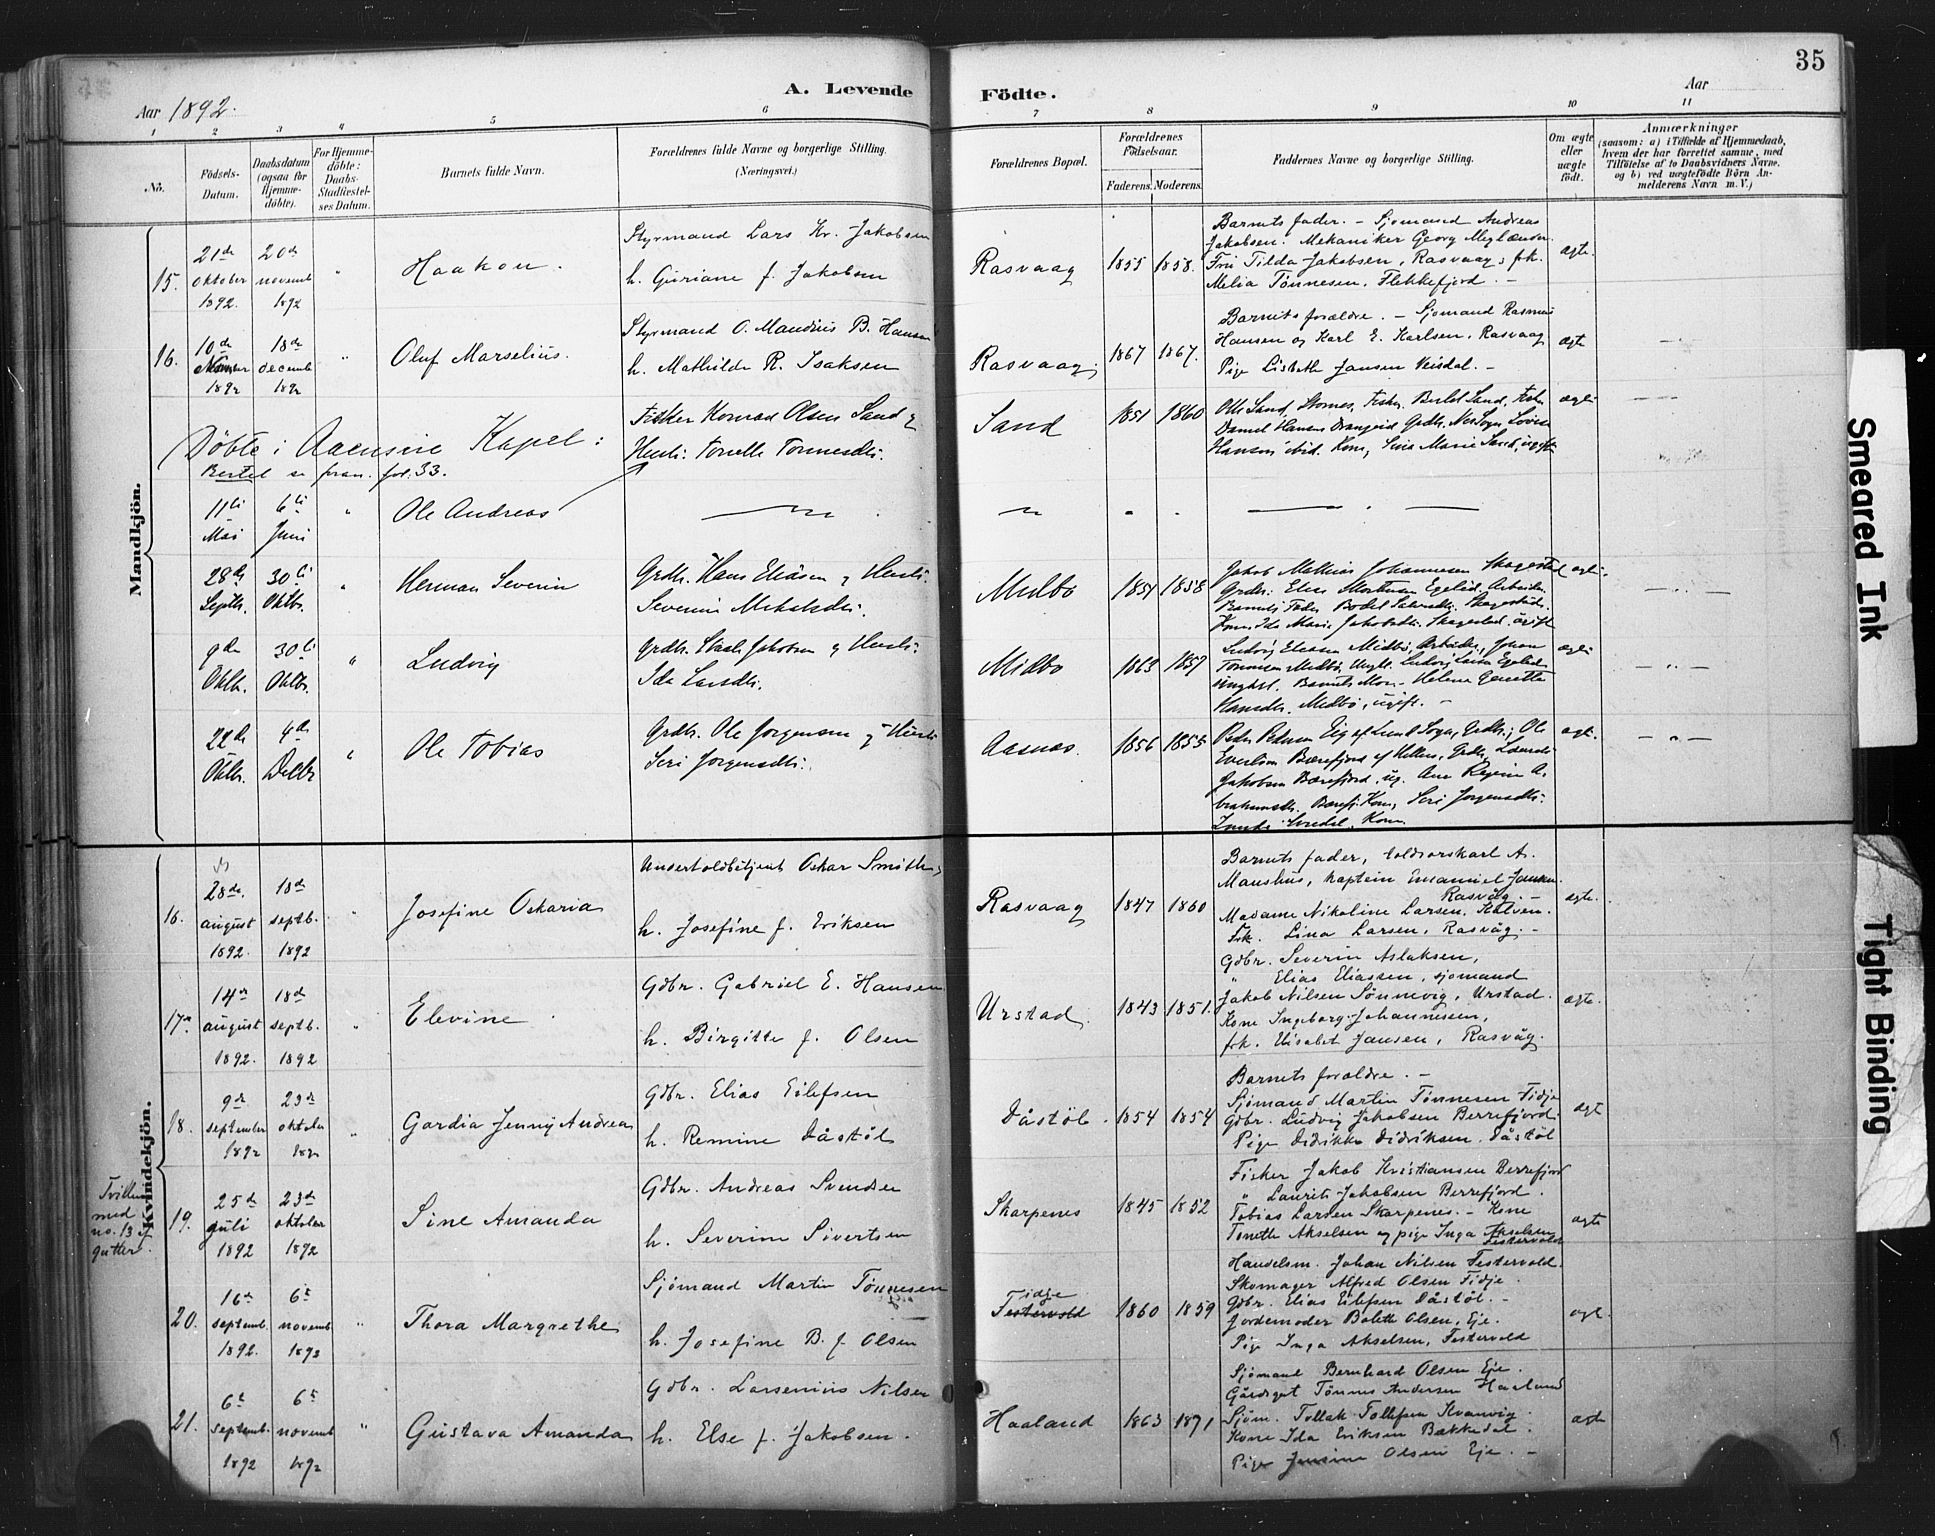 35
A. Levende Födte.
Aar 1892.
Aar
1 2 3 4 5 6 7 8 9 10 11
No.
Födsels-Datum.
Daabsdatum (ogsaa for Hjemme-döbte).
For Hjemme-döbte: Daabs-Stadfæstel-ses Datum.
Barnets fulde Navn.
Forældrenes fulde Navne og borgerlige Stilling. (Næringsvei.)
Forældrenes Bopæl.
Forældrenes Födselsaar.
Faderens. Moderens.
Faddernes Navne og borgerlige Stilling.
Om ægte eller uægte födt.
Anmærkninger
(saasom: a) i Tilfælde af Hjemmedaab,
hvem der har forrettet samme, med
Tilföielse af to Daabsvidners Navne,
og b) ved uægtefödte Börn An-
melderens Navn m. V.)
Mandkjön.
15. 21de oktober 1892. 20de novemb 1892 " Haakon.
Styrmand Lars Kr. Jakobsen
h. Guriane f. Jakobsen
Rasvaag 1855 1858.
Barnets fader. – Sjømand Andreas
Jakobsen. Mekaniker Georg
Fru Tilda Jakobsen, Rasvaag, frk.
Melia Tønnesen, Flekkefjord. –
ægte.
16. 10de 1892 18de decemb 1892 " Oluf Marselius.
Styrmand O. Maudius B. Hansen
h. Mathilde R. Isaksen
Rasvaag. 1867 1867.
Barnets forældre. – Sjømand Rasmus
Hansen og Karl E. Karlsen, Rasvaag
Pige Lisbeth Jansen
ægte
Døbte i Aaensire Kapel:
Bertel se foran. fol. 33.
Fisker Konrad Olsen Sand &
Hustr. Tonette Tønnesdtr.
Sand 1851 1860
Olle Sand, Stornes, Fisker, Bertel Sand, Fisker
Daniel Hansen
Hansen ibid. Kone, Sina Marie Sand, ugift
ægte
11te Mai 6te Juni " Ole Andreas
28de Septbr. 30te Oktbr. " Herman Severin
Grdbr. Hans Eliasen & Hustr.
Severine Mikalsdtr.
Midbø 1854 1858
Jakob Mathias Johannesen Skagestad
Grdbr. Elias Mortensen Egelid, Arbeider
Barnets Fader
Kone, Ida Marie Jakobsdtr. Skagestad, ugift
ægte
9de Oktbr. 30te Oktbr. " Ludvig
Grdbr. Jakobsen & Hustr.
Ida Larsdtr.
Midbø 1863 1857
Ludvig Eliasen Midbø, Arbeider, Johan
Tønnesen Midbø, Ungk. Ludvig Larsen Egelid
Ungkl. Barnets Mor – Helene
Hansdtr. Midbø, ugift. –
ægte
22de Oktbr. 4de Decbr " Ole Tobias
Grdbr. Ole Jørgensen & Hustr.
Seri Jørgensdtr.
Aasnes 1856 1855
Peder Pedersen Eig af Lund Sogn, Grdbr.; Ole
Jakobsen Bærefjord, ug. Ane Regine A-
brahamsdtr. Kone, Seri Jørgensdtr.
Kone
ægte.
Kvindekjön.
16. 28de august 1892. 18de septb. 1892 " Josefine Oskaria
Undertoldbetjent Oskar Smith
h. Josefine f. Eriksen
Rasvaag 1847 1860
Barnets fader, toldrorskarl A.
Maushus, kaptein Emanuel Jansen.
Rasvåg. –
Madame Nikoline Larsen, Kalven.
Frk. Lina Larsen, Rasvåg. –
ægte.
17. 14de august 1892. 18de septb. 1892 " Elevine
Gdbr. Gabriel E. Hansen
h. Birgitte f. Olsen
Urstad 1843 1851.
Gdbr. Severin Aslaksen,
" Elias Eliassen, sjømand
Jakob Nilsen Sønnevig, Urstad.
Kone Ingeborg Johannessen,
frk. Elisabet Jansen, Rasvåg.
ægte.
18. 9de september 1892 23de oktober 1892 " Gardia Jenny Andrea
Gdbr. Elias Eilefsen
h. Remine Dåstöl
Dåstöl. 1854 1854
Barnets forældre. –
Sjømand Martin Tønnesen Fidje
Gdbr. Ludvig Jakobsen Berrefjord.
Pige Didrikke Didriksen. Dåstöl
ægt
Tvilling
med
no. 13 af
gutter.
19. 25de juli 1892 23de oktober 1892 Sine Amanda
Gdbr. Andreas Svendsen
h. Severine Sivertsen
Skarpenes 1845 1852
Fisker Jakob Kristiansen Berrefjord
" Laurits Jakobsen Berrefjord.
Tobias Larsen Skarpenes. – Kone
Tonette Akselsen og pige Inga Akselsen
Festervold
ægte
20. 16de septemb. 1892. 6te novemb. 1892 " Thora Margrethe
Sjömand Martin Tønnesen
h. Josefine B. f. Olsen
Fidje
Festervold 1860 1859
Handelsm. Johan Nilsen Festervold.
Skomager Alfred Olsen Fidje.
Gdbr. Elias Eilefsen Dåstöl. –
Jordemoder Bolette Olsen, Eje.
Pige Inga Akselsen, Festervold
ægte.
21. 6te septemb. 1892 6te novemb 1892 " Gustava Amanda
Gdbr. Larsenius Nilsen
h. Else f. Jakobsen.
Haaland 1863 1871
Sjømand Bernhard Olsen Eje.
Gårdsgut Tønnes Andersen Haaland
Sjøm. Tollak Tollefsen Kvanvig.
Kone Ida Eriksen Bækkedal.
Pige Jensine Olsen Eje. –
ægte
Smeared Ink
Tight Binding